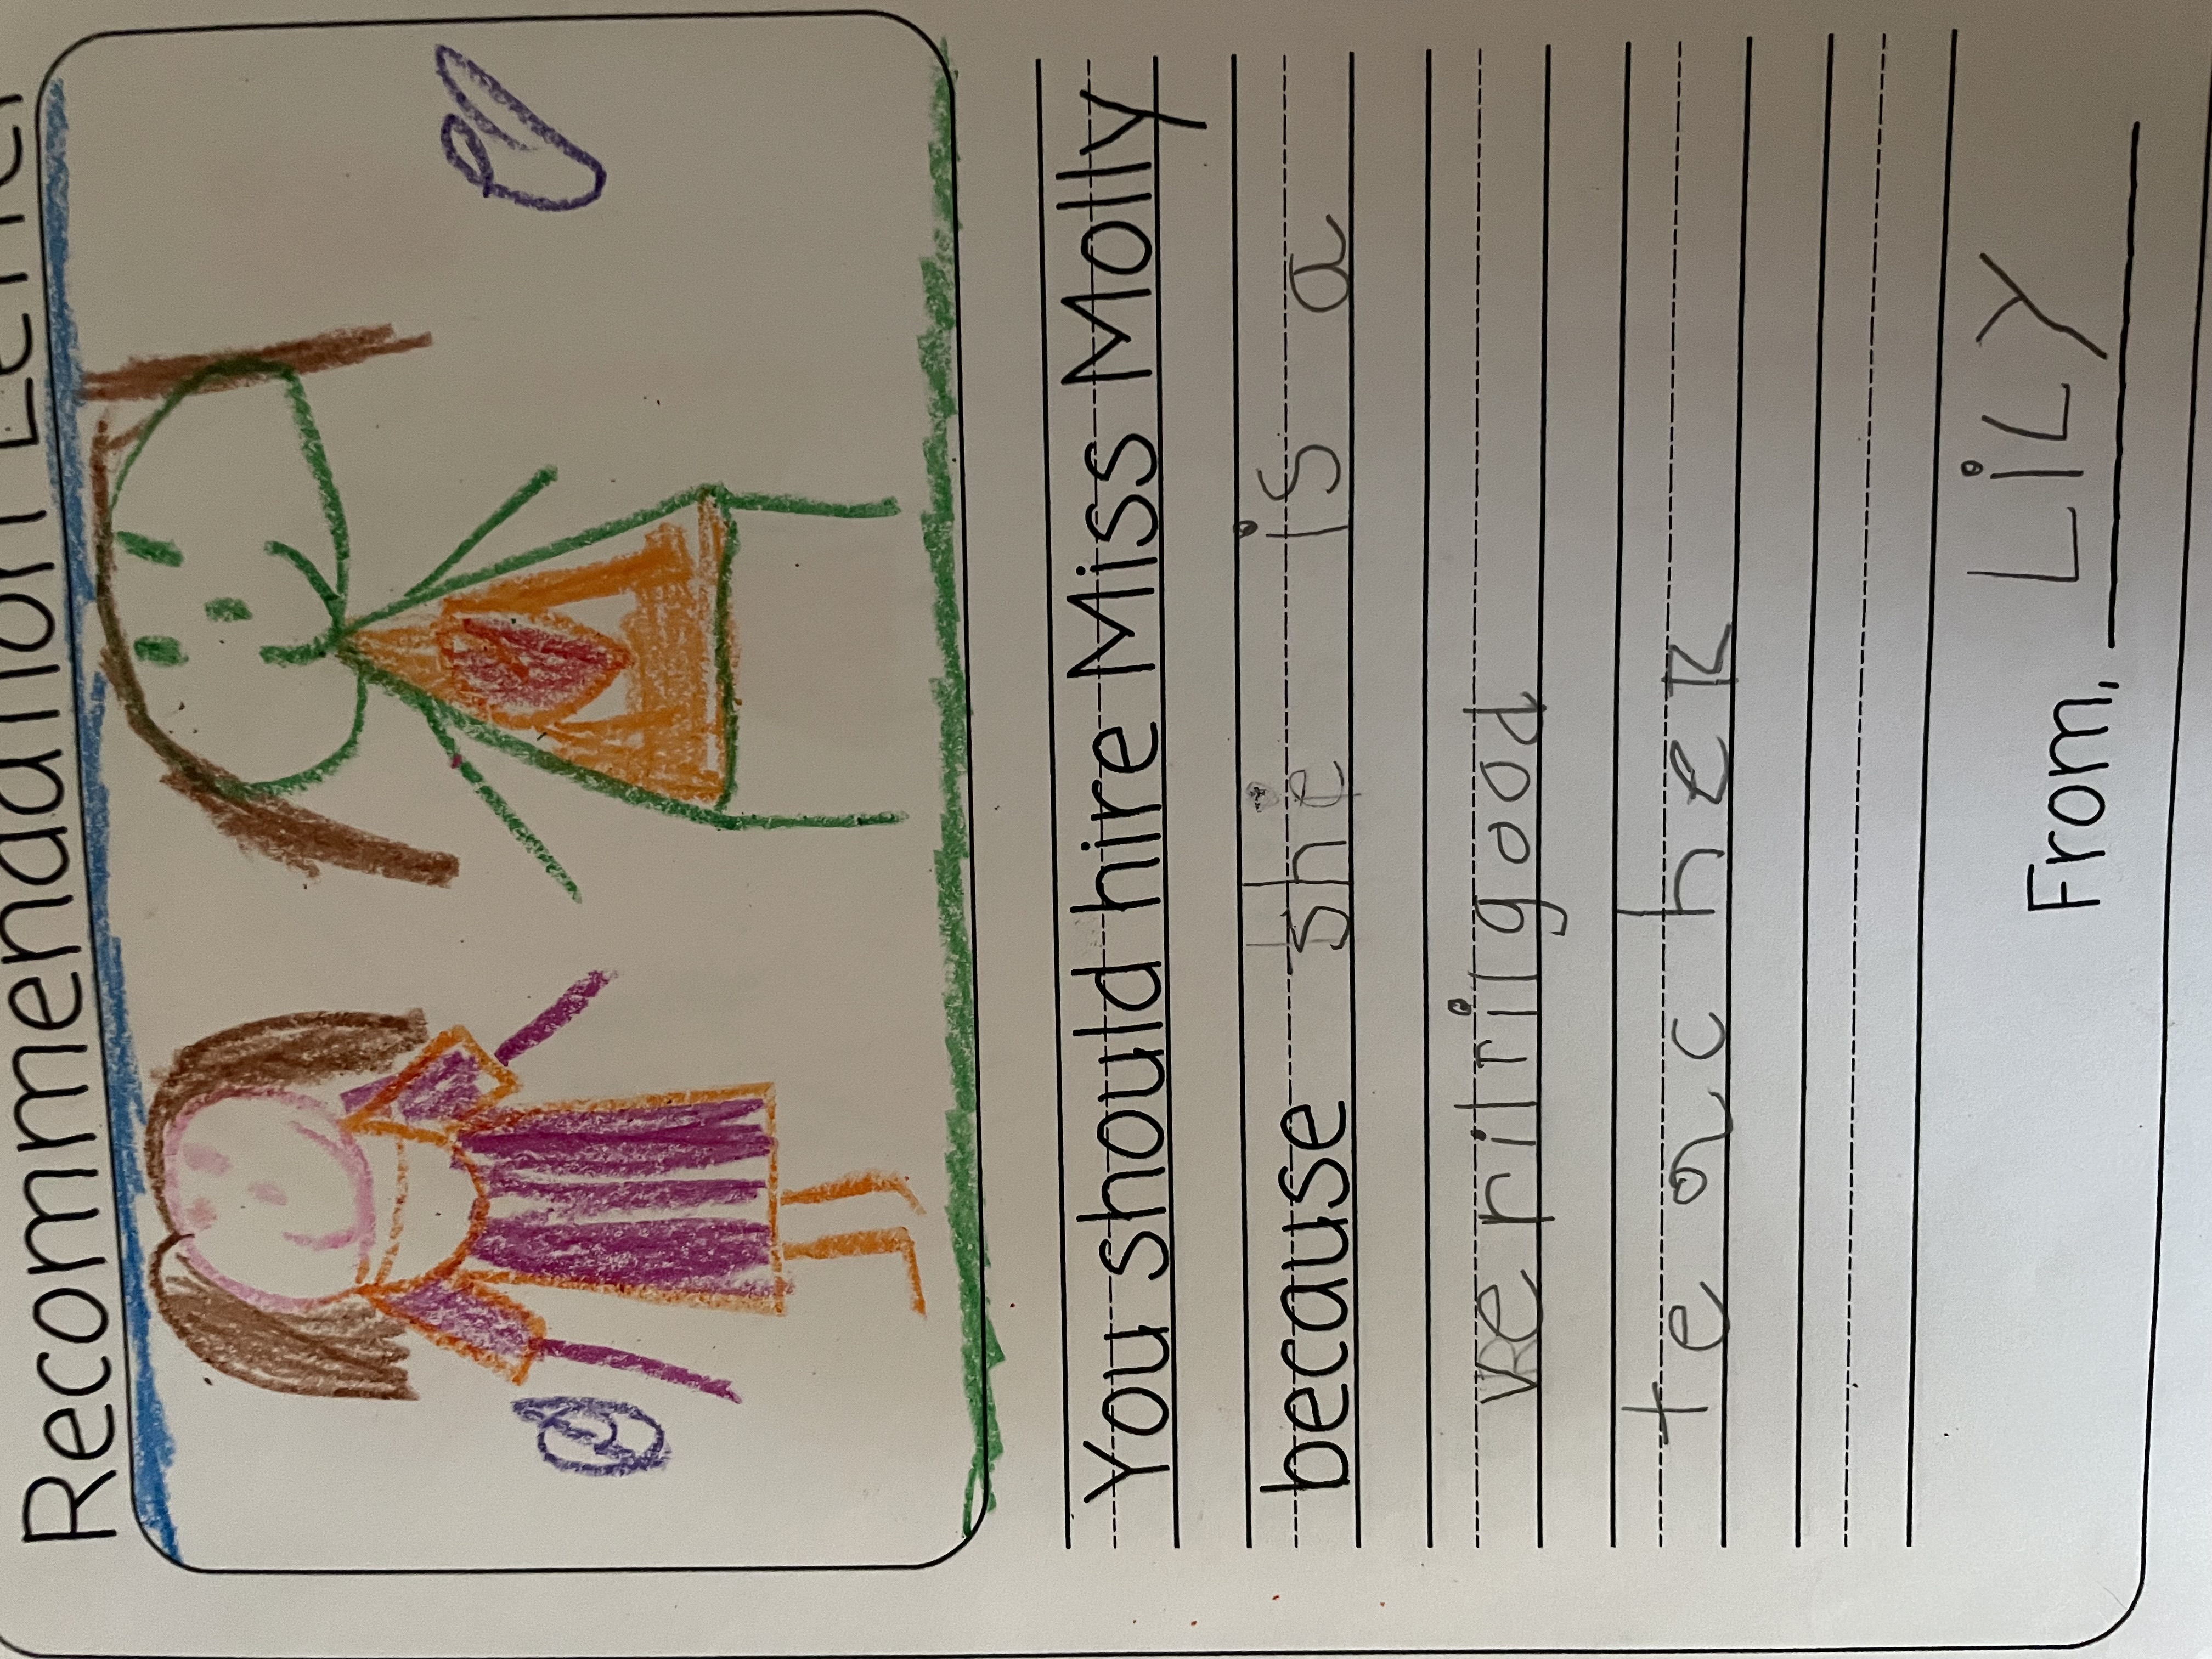 Recommendation Letter
You should hire Miss Molly
because she is a
verilrilgood
teacher
From, LiLY